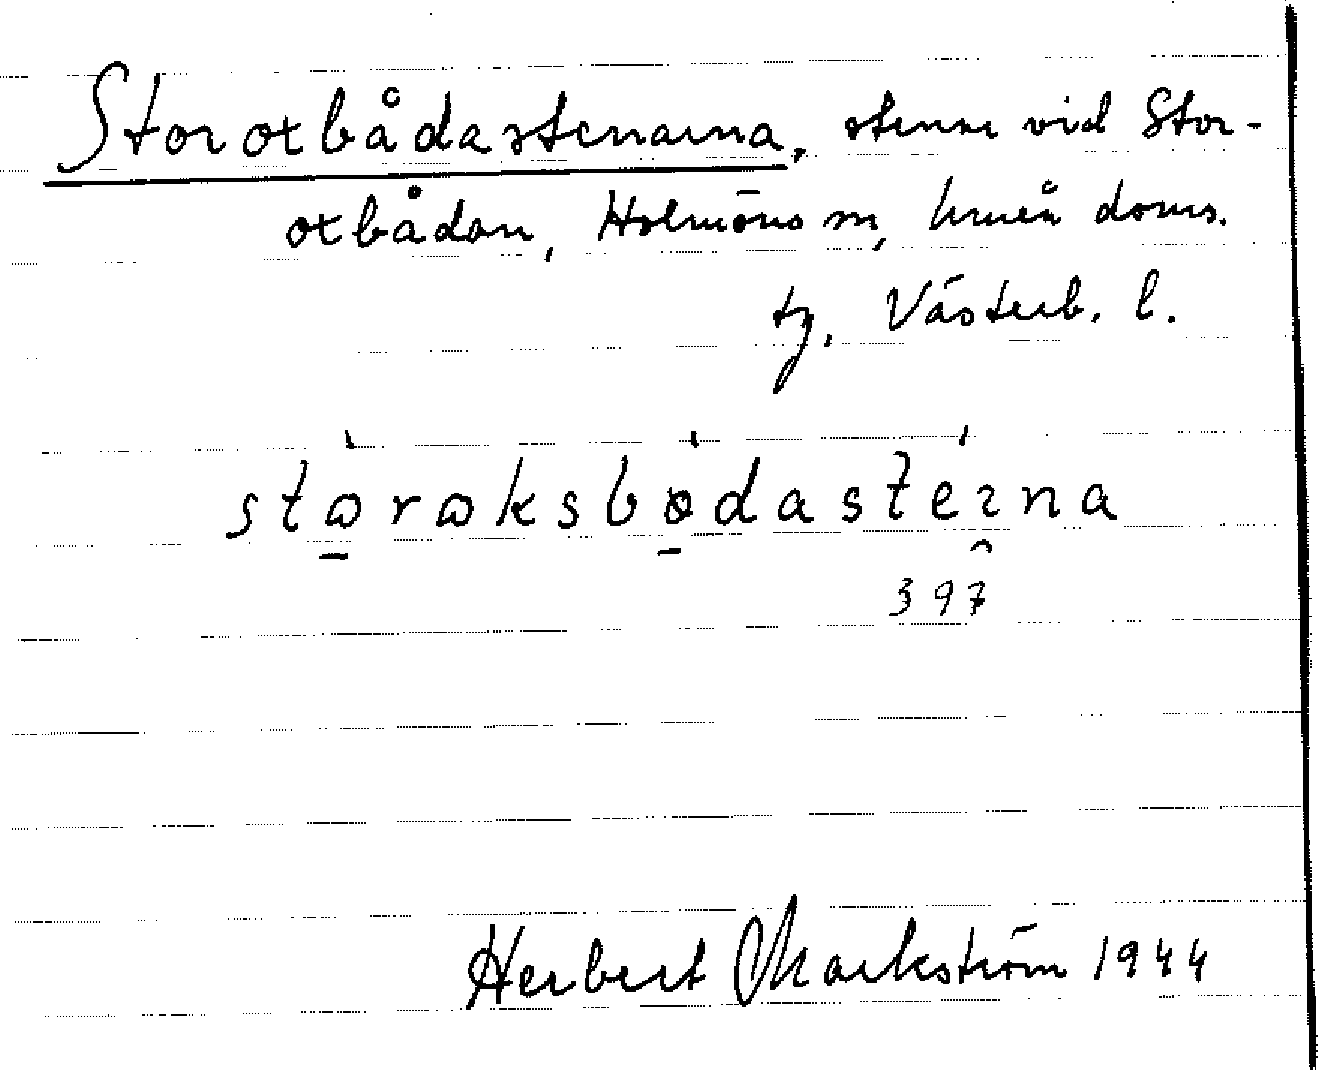 Storoxbådastenarna, stenar vid Stor-
oxbådan, Holmöns sn, Umeå doms.
tg, Västerb. l.
stωrωksbødasteɩna
397
Herbert Markström 1944